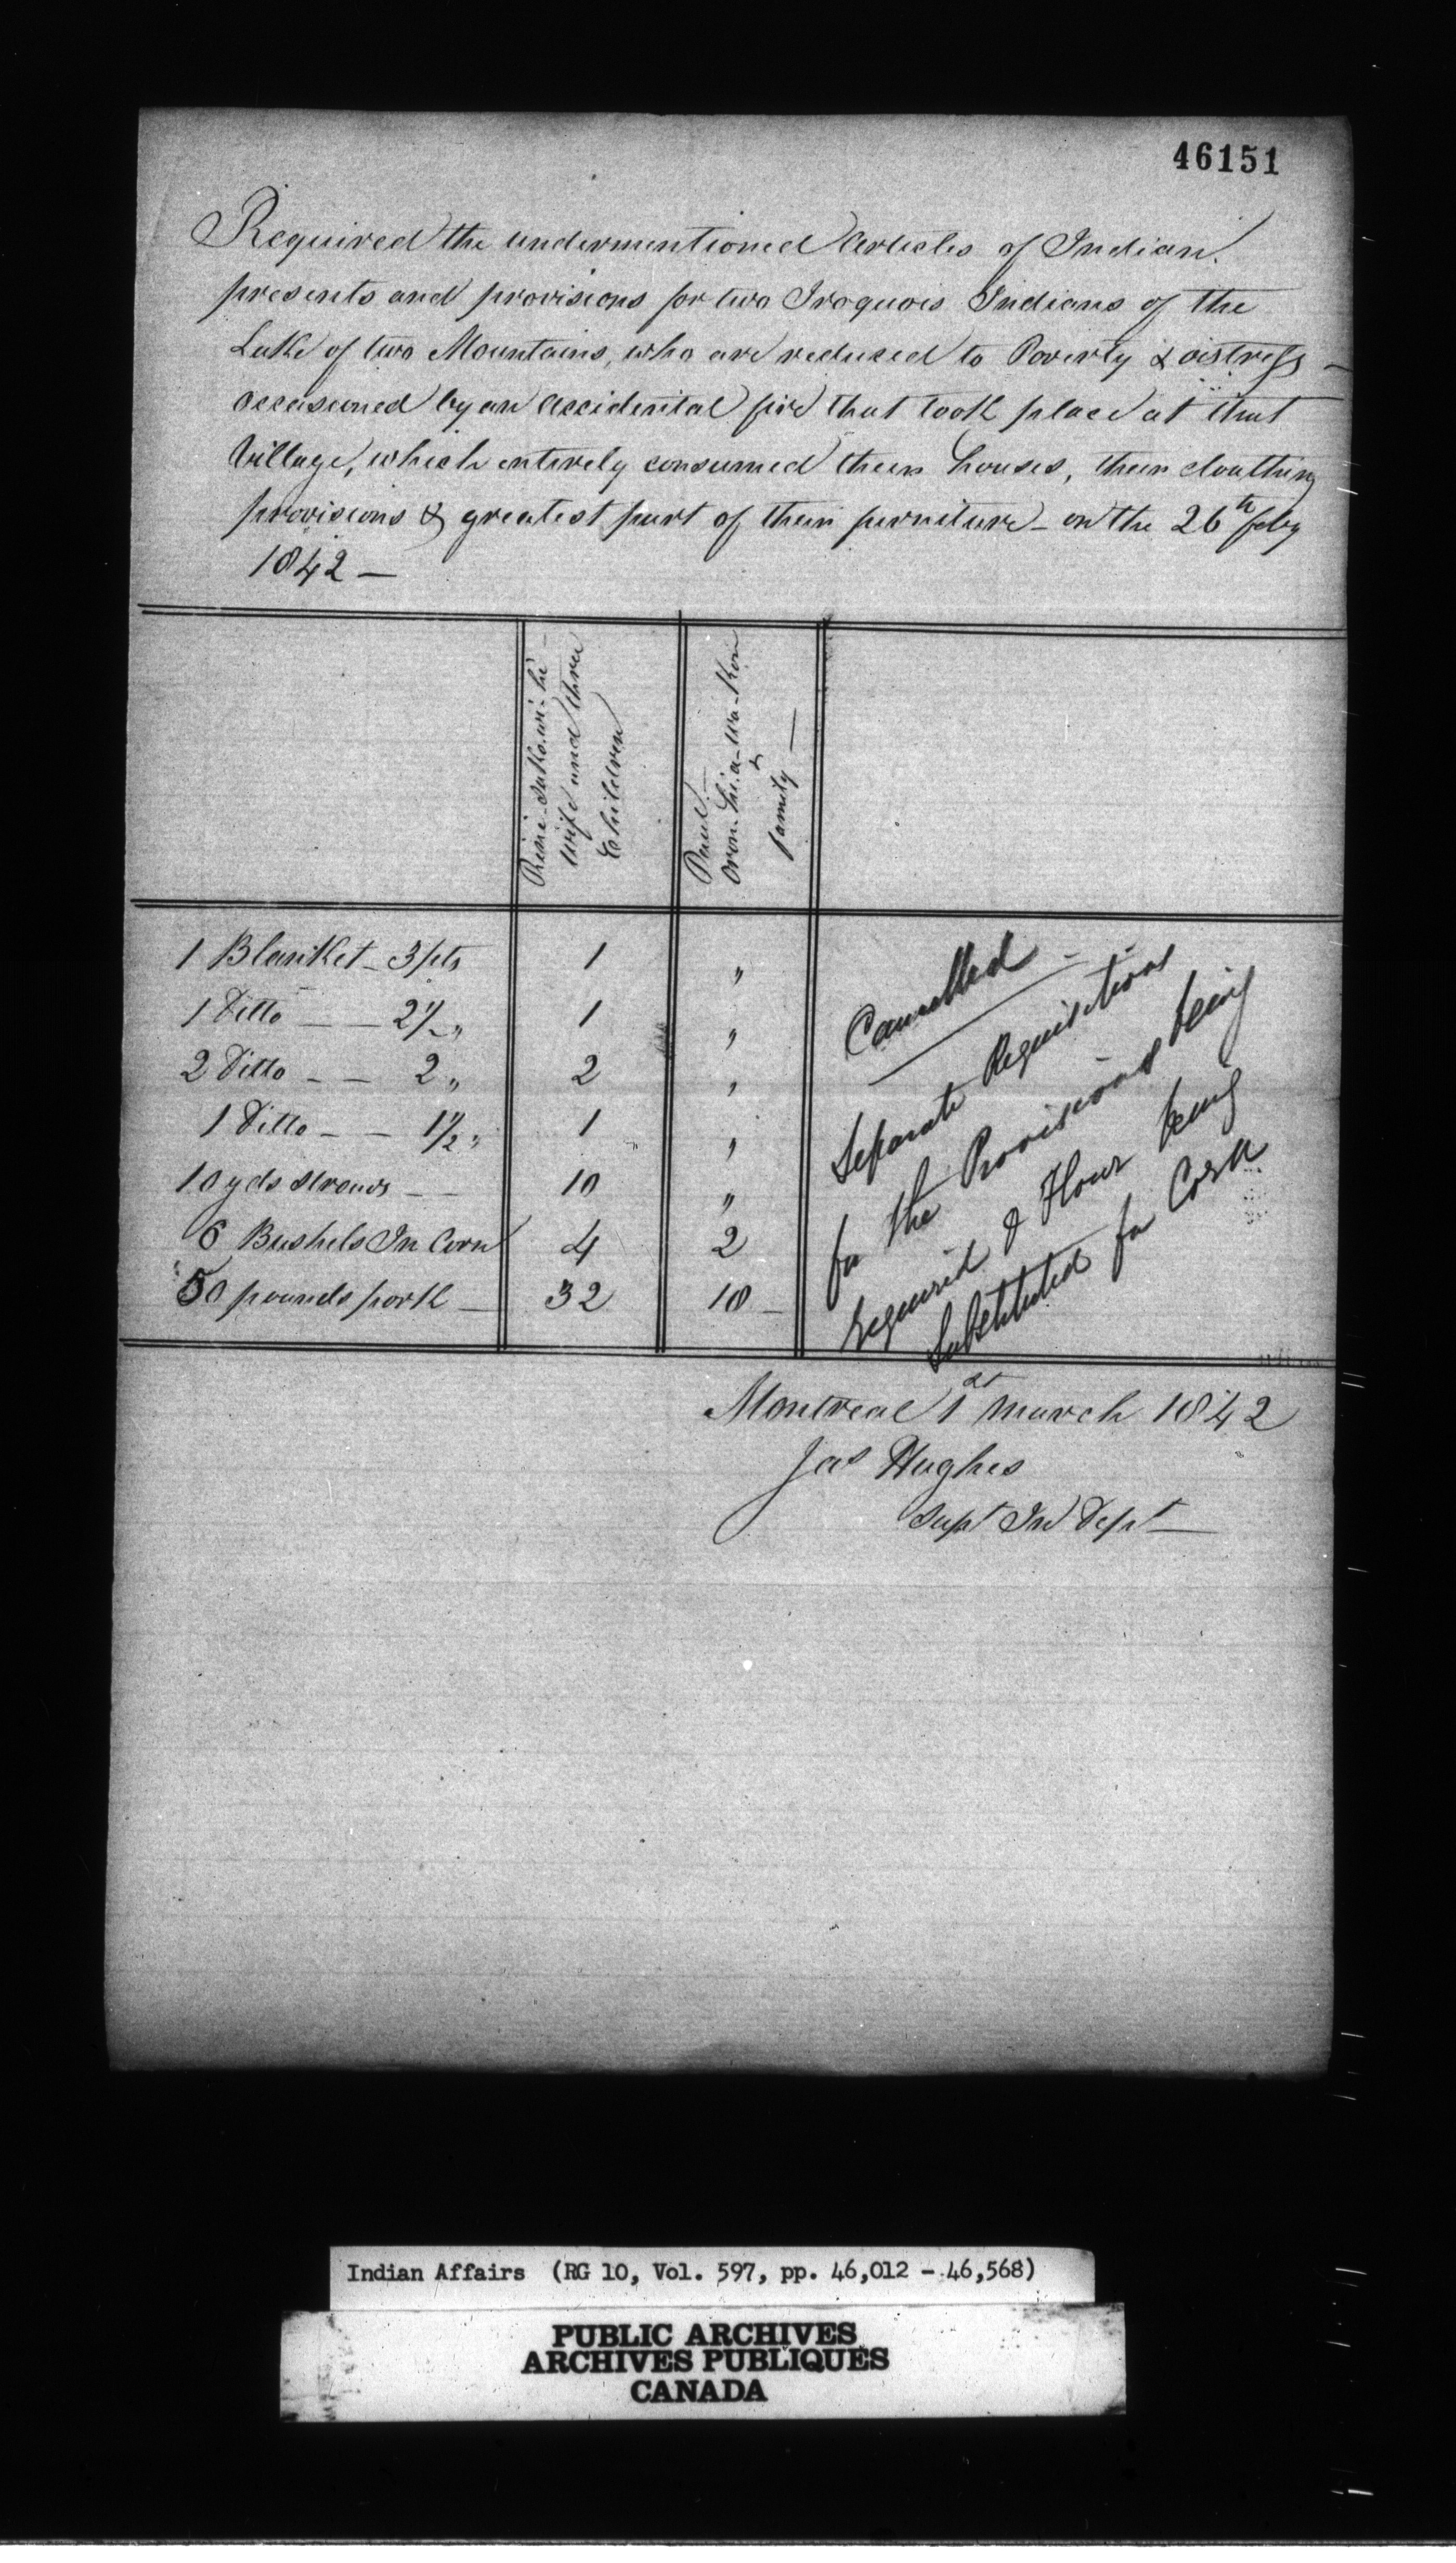 46151
Required the undermentioned Articles of Indian
presents and provisions for two Iroquois Indians of the
Lake of two Mountains, who are reduced to Poverty & distress -
occasioned by an accidental fire that took place at that
Village, which entirely consumed their houses, their cloathing
provisions & greatest part of their furniture - on the 26th feby
1842 -
wife and three
Children
Paul
& family -
1 Blanket - 3 pts 1 "
1 Ditto - - 2 1/2 " 1 "
2 Ditto - - 2 " 2 "
1 Ditto - - 1 1/2 " 1 "
10 yds Strouds - - 10 "
6 Bushels In Corn 4 2
50 pounds pork - 32 18 -
Cancelled -
Separate Requisitions
for the Provisions being
required & Flour being
Substituted for Corn
Montreal 1st March 1842
Jas Hughes
Supt Ind Dept
Indian Affairs (RG 10, Vol. 597, pp. 46,012 - 46,568)
PUBLIC ARCHIVES
ARCHIVES PUBLIQUES
CANADA